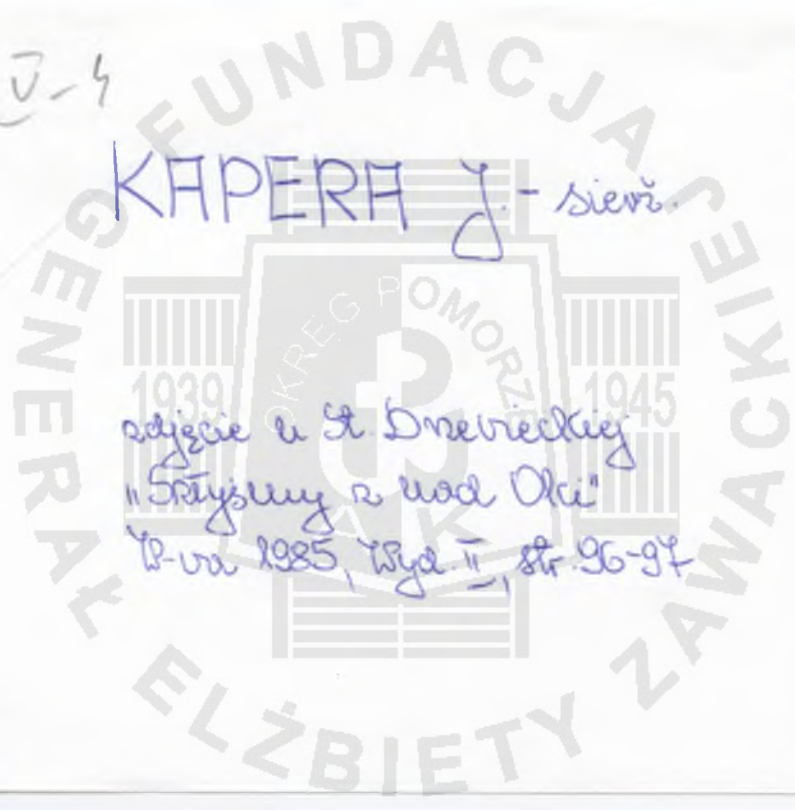 V-4
KAPERA J. - sierż.
zdjęcie u St. Drzewieckiej
"Szłyśmy z nad Oki"
W-wa 1985, Wyd. II, str. 96-97
FUNDACJA GENERAŁ ELŻBIETY ZAWACKIEJ
OKRĘG POMORZE
1939 1945
AK